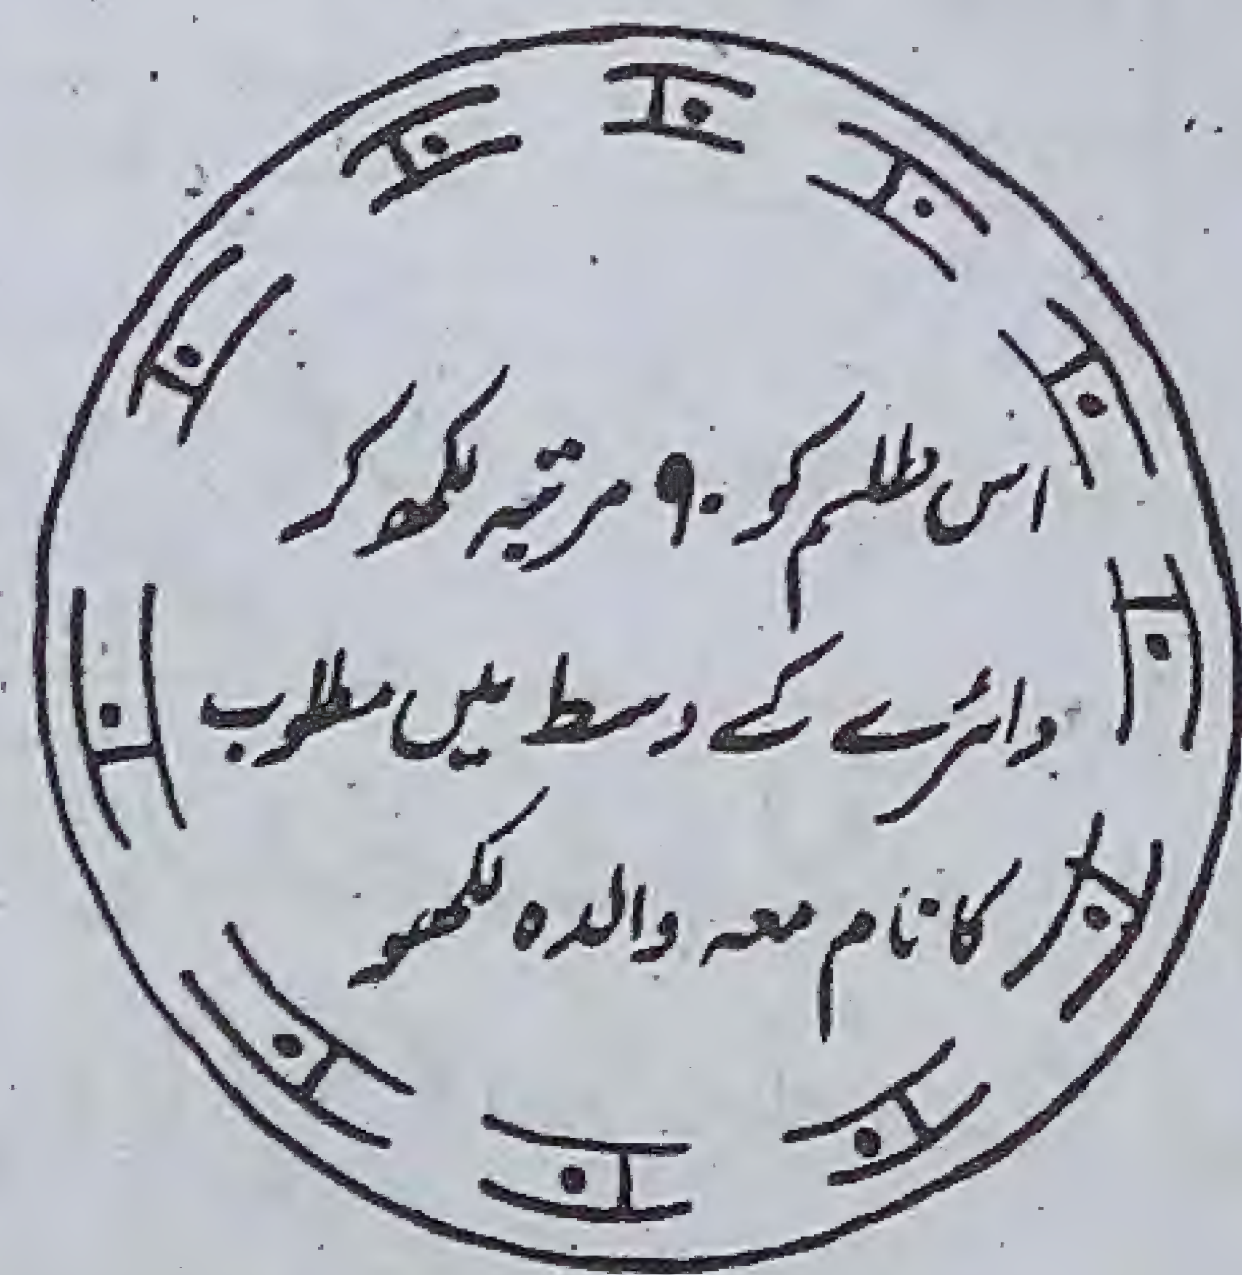 اس طلسم کو ۹۰ مرتبہ لکھ کر
دائرے کے وسط میں مطلوب
کا نام معہ والدہ لکھو